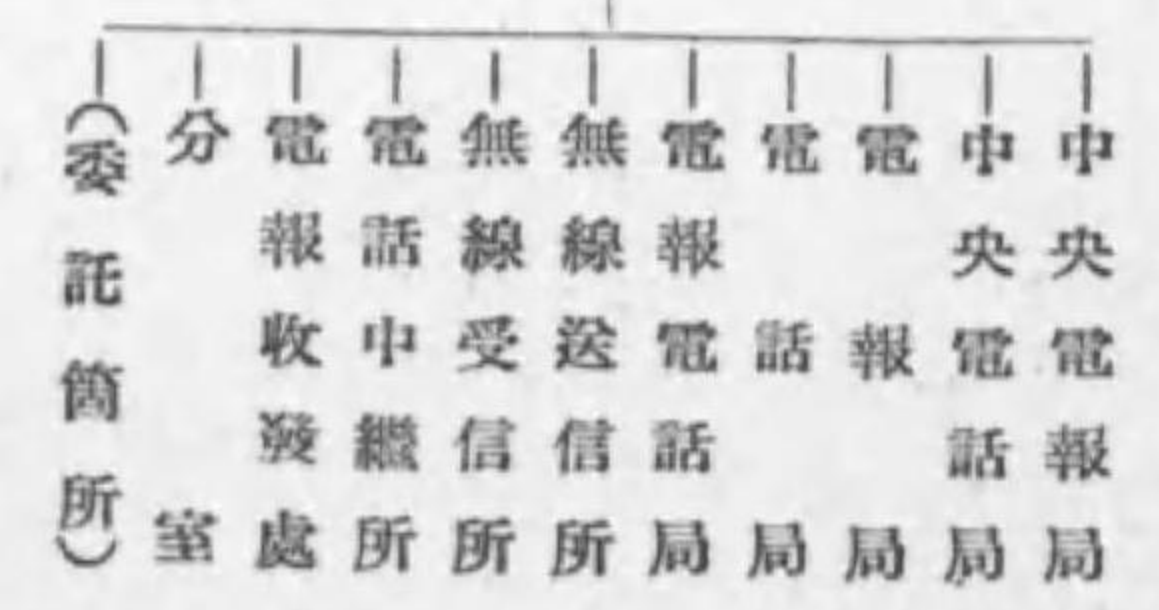 中央電報局
中央電話局
電報局
電話局
電報電話局
無線送信所
無線受信所
電話中繼所
電報收發處
分室
（委託箇所）